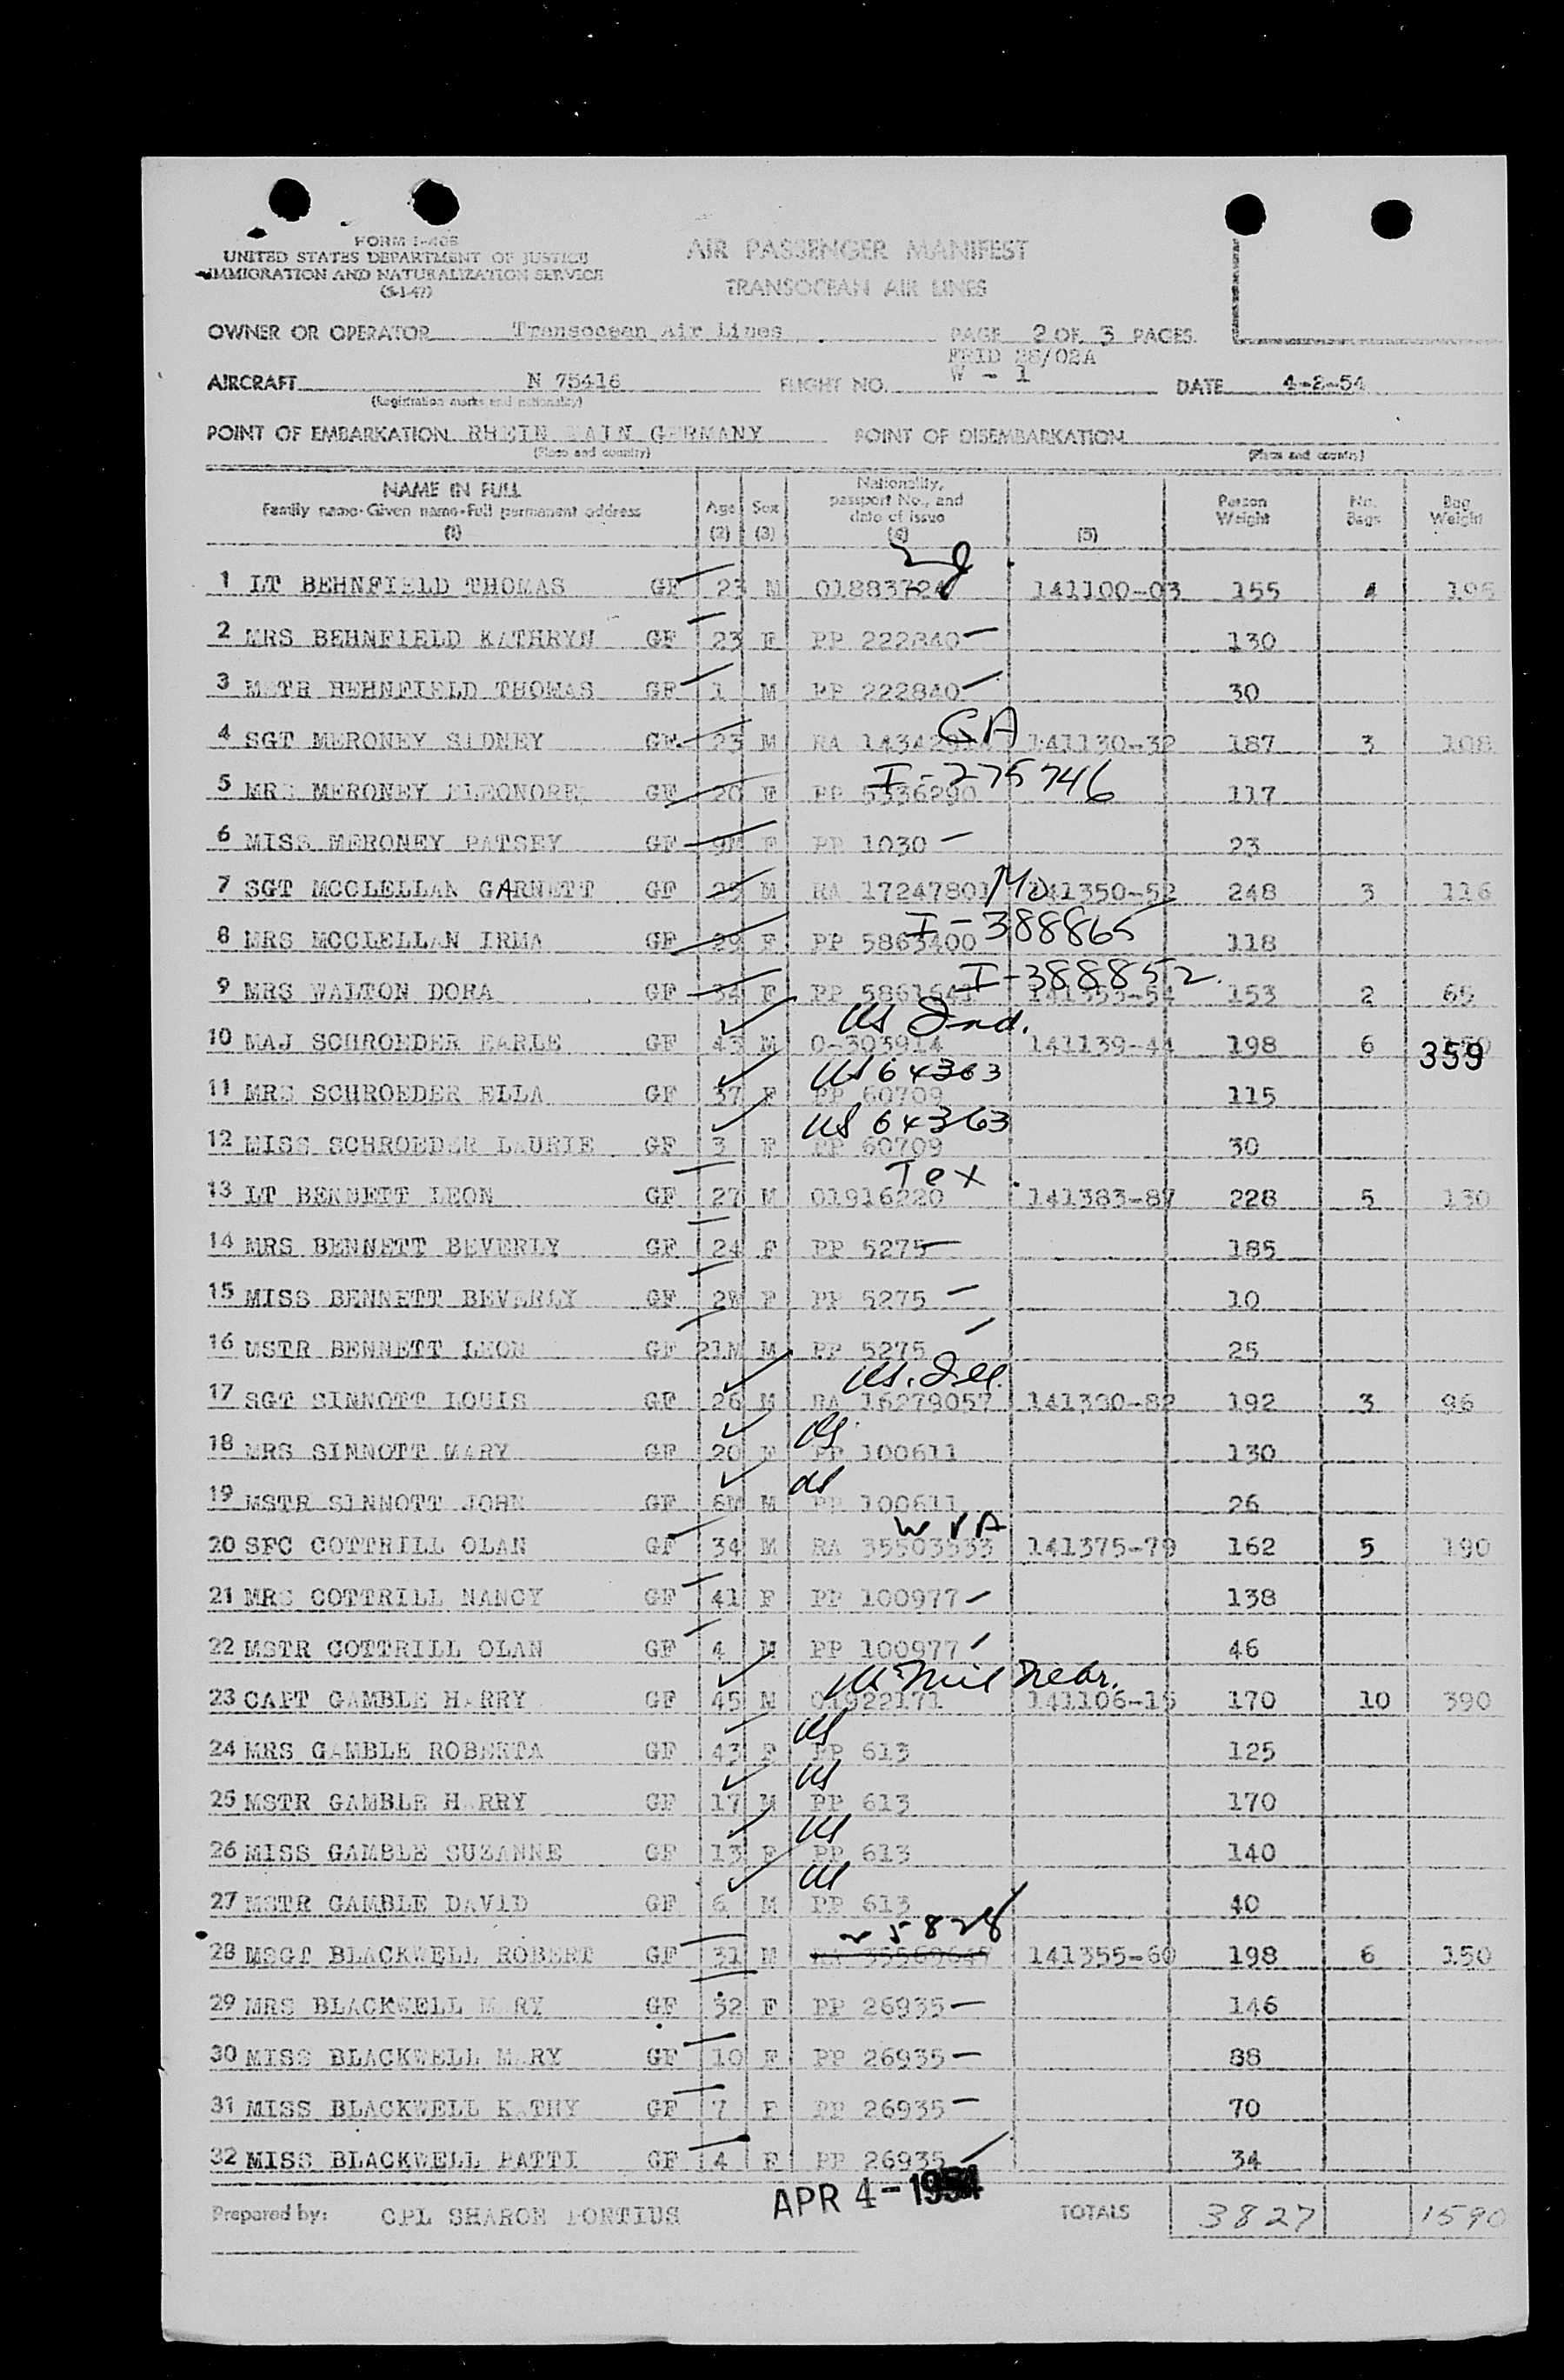 FORM I-408
UNITED STATES DEPARTMENT OF JUSTICE
IMMIGRATION AND NATURALIZATION SERVICE
(5-1-47)
AIR PASSENGER MANIFEST
TRANSOCEAN AIR LINES
OWNER OR OPERATOR Transocean Air Lines PAGE 2 OF 3 PAGES
FRID 28/02A
AIRCRAFT N 75416 FLIGHT NO. W - 1 DATE 4-2-54
(Registration marks and nationality)
POINT OF EMBARKATION RHEIN MAIN GERMANY POINT OF DISEMBARKATION
(Place and country) (Place and country)
NAME IN FULL Age Sex Nationality, passport No., and date of issue Person Weight No. Bags Bag Weight
Family name-Given name-Full permanent address
(1) (2) (3) (4) (5)
1 LT BEHNFIELD THOMAS GF 23 M 141100-03 155 4 195
2 MRS BEHNFIELD KATHRYN GF 23 F PP 222840 130
3 MSTR BEHNFIELD THOMAS GF 1 M PP 222840 30
GA
4 SGT MERONEY SIDNEY GF 23 M RA 141130-32 187 3 108
I-275746
5 MRS MERONEY ELEONORE GF 20 F PP 5336290 117
6 MISS MERONEY PATSEY GF 9M F PP 1030 23
Mo
7 SGT MCCLELLAN GARNETT GF 25 M RA 17247801 141350-52 248 3 116
I-388865
8 MRS MCCLELLAN IRMA GF 29 F PP 5863400 118
I-388852
9 MRS WALTON DORA GF 34 F PP 5861641 141353-54 153 2 65
US Ind.
10 MAJ SCHROEDER EARLE GF 43 M 0-303914 141139-44 198 6
359
US 64363
11 MRS SCHROEDER ELLA GF 37 F PP 60709 115
US 64363
12 MISS SCHROEDER LAURIE GF 3 F PP 60709 30
Tex
13 LT BENNETT LEON GF 27 M 01916220 141383-87 228 5 130
14 MRS BENNETT BEVERLY GF 24 F PP 5275 185
15 MISS BENNETT BEVERLY GF 2W F PP 5275 10
16 MSTR BENNETT LEON GF 21M M PP 5275 25
US. Ill.
17 SGT SINNOTT LOUIS GF 26 M RA 16279057 141380-82 192 3 96
US
18 MRS SINNOTT MARY GF 20 F PP 100611 130
US
19 MSTR SINNOTT JOHN GF 6M M PP 100611 26
W VA
20 SFC COTTRILL OLAN GF 34 M RA 35503533 141375-79 162 5 190
21 MRS COTTRILL NANCY GF 41 F PP 100977 138
22 MSTR COTTRILL OLAN GF 4 M PP 100977 46
US Mil Nebr.
23 CAPT GAMBLE HARRY GF 45 M 01922171 141106-15 170 10 390
US
24 MRS GAMBLE ROBERTA GF 43 F PP 613 125
US
25 MSTR GAMBLE HARRY GF 17 M PP 613 170
US
26 MISS GAMBLE SUZANNE GF 13 F PP 613 140
US
27 MSTR GAMBLE DAVID GF 6 M PP 613 40
28 MSGT BLACKWELL ROBERT GF 31 M RA 141355-60 198 6 150
29 MRS BLACKWELL MARY GF 32 F PP 26935 146
30 MISS BLACKWELL MARY GF 10 F PP 26935 88
31 MISS BLACKWELL KATHY GF 7 F PP 26935 70
32 MISS BLACKWELL PATTI GF 4 F PP 26935 34
APR 4-1954
Prepared by: CPL SHARON PONTIUS TOTALS 3827 1590